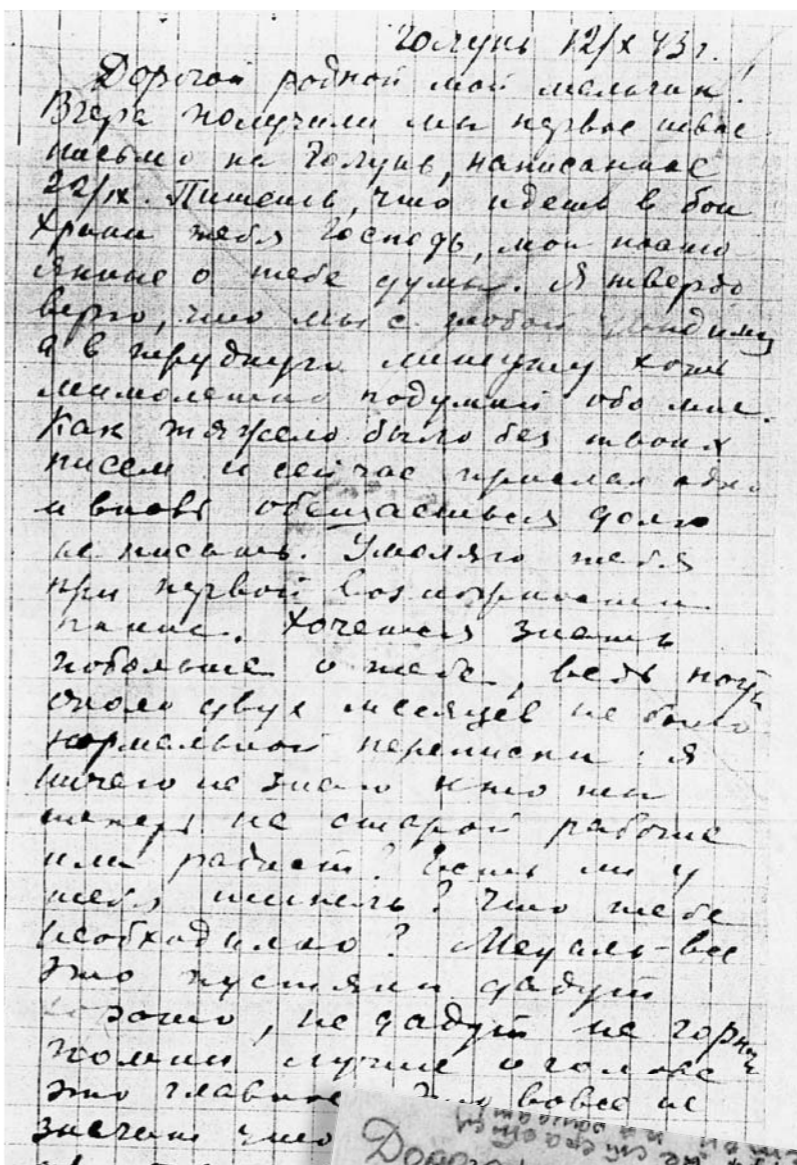 Голунь 12/X 43 г.
Дорогой родной мой мальчик!
Вчера получили мы первое твое
письмо на Голунь, написанное
22/IX. Пишешь, что идешь в бой
Храни тебя Господь, мои посто
янные о тебе думы. Я твердо
верю, что мы с тобой увидимся
а в трудную минуту хоть
мимолетно подумай обо мне.
Как тяжело было без твоих
писем и сейчас прислал одно
и вновь обещаешься долго
не писать. Умоляю тебя
при первой возможности
пиши. Хочется знать
побольше о тебе, ведь почти
около двух месяцев не было
нормальной переписки. Я
ничего не знаю кто ты
теперь на старой работе
или радист? Есть ли у
тебя шинель? Что тебе
необходимо? Медаль - все
это пустяки дадут
хорошо, не дадут не горюй
помни лучше о голове
это главное. Это вовсе не
значит что
Дорого